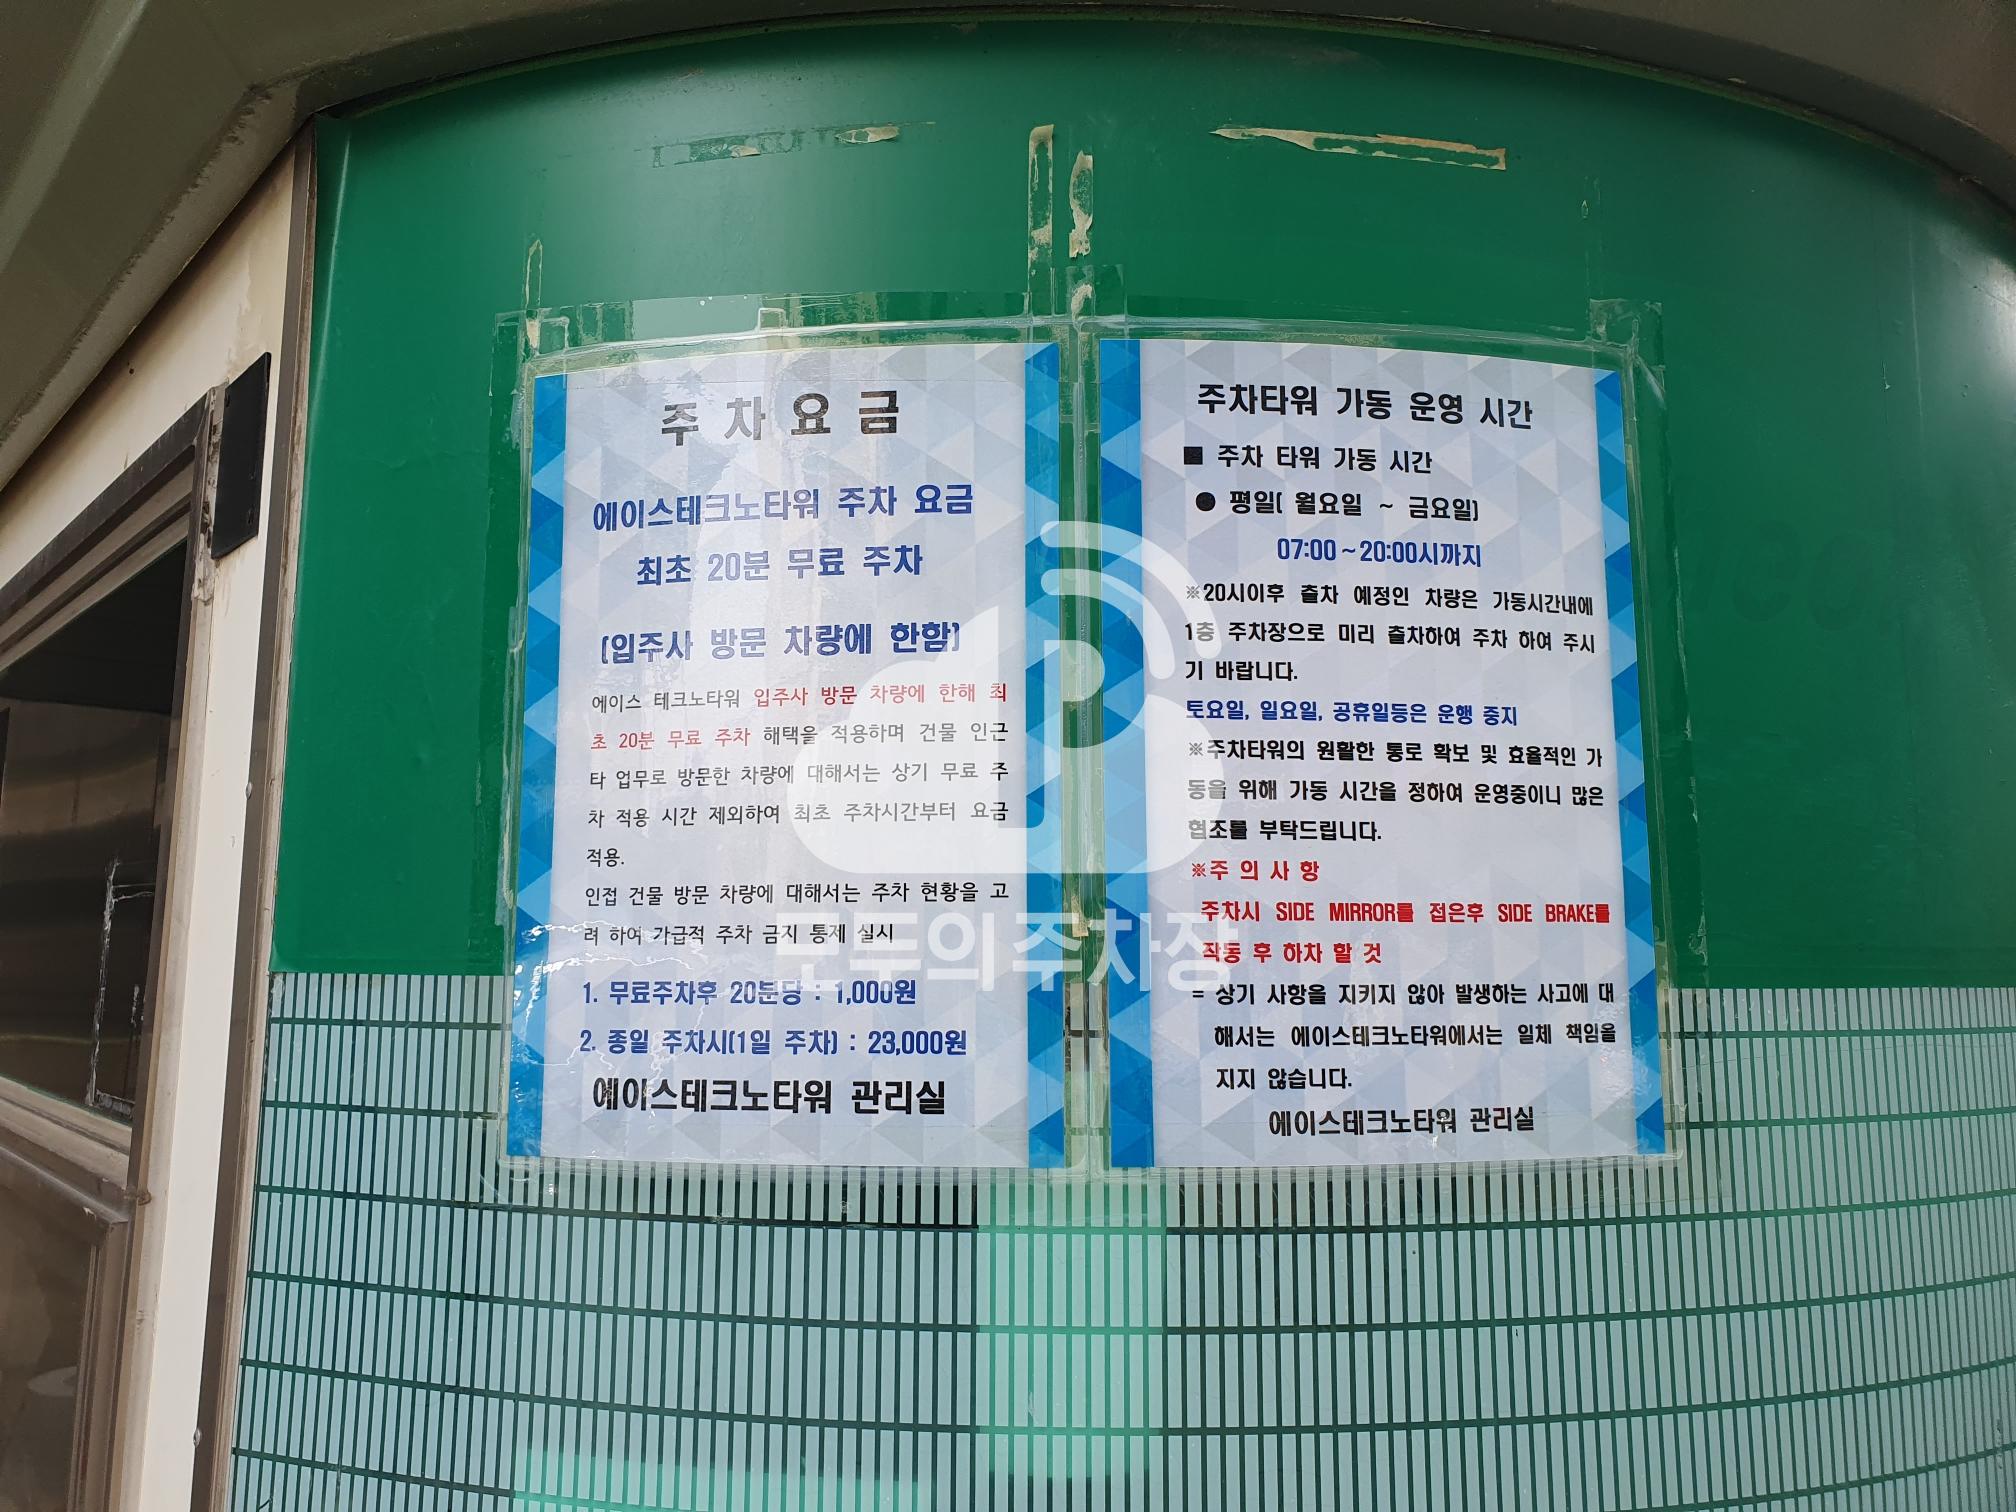 주 차 요 금
에이스테크노타워 주차 요금
최초 20분 무료 주차
(입주사 방문 차량에 한함)
에이스 테크노타워 입주사 방문 차량에 한해 최
초 20분 무료 주차 해택을 적용하며 건물 인근
타 업무로 방문한 차량에 대해서는 상기 무료 주
차 적용 시간 제외하여 최초 주차시간부터 요금
적용.
인접 건물 방문 차량에 대해서는 주차 현황을 고
려 하여 가급적 주차 금지 통제 실시
1. 무료주차후 20분당 : 1,000원
2. 종일 주차시(1일 주차) : 23,000원
에이스테크노타워 관리실
주차타워 가동 운영 시간
■ 주차 타워 가동 시간
● 평일( 월요일 ~ 금요일)
07:00 ~ 20:00시까지
※20시이후 출차 예정인 차량은 가동시간내에
1층 주차장으로 미리 출차하여 주차 하여 주시
기 바랍니다.
토요일, 일요일, 공휴일등은 운행 중지
※주차타워의 원활한 통로 확보 및 효율적인 가
동을 위해 가동 시간을 정하여 운영중이니 많은
협조를 부탁드립니다.
※주 의 사 항
주차시 SIDE MIRROR를 접은후 SIDE BRAKE를
작동 후 하차 할 것
= 상기 사항을 지키지 않아 발생하는 사고에 대
해서는 에이스테크노타워에서는 일체 책임을
지지 않습니다.
에이스테크노타워 관리실
모두의주차장